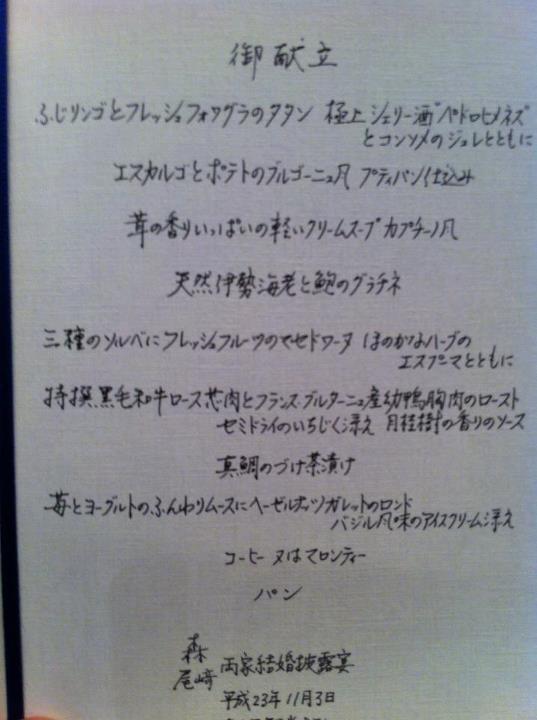 御献立
ふじリンゴとフレッシュフォワグラのタタン 極上シェリー酒“ペドロヒメネズ”
とコンソメのジュレとともに
エスカルゴとポテトのブルゴーニュ風 プティパン仕込み
茸の香りいっぱいの軽いクリームスープ カプチーノ風
天然伊勢海老と鮑のグラチネ
三種のソルベにフレッシュフルーツのマセドワーヌ ほのかなハーブの
エスプーマとともに
特撰黒毛和牛ロース芯肉とフランス・ブルターニュ産幼鴨胸肉のロースト
セミドライのいちじく添え 月桂樹の香りのソース
真鯛のづけ茶漬け
苺とヨーグルトのふんわりムースにヘーゼルナッツガレットのロンド
バジル風味のアイスクリーム添え
コーヒー 又はマロンティー
パン
森
尾崎 両家結婚披露宴
平成23年11月3日